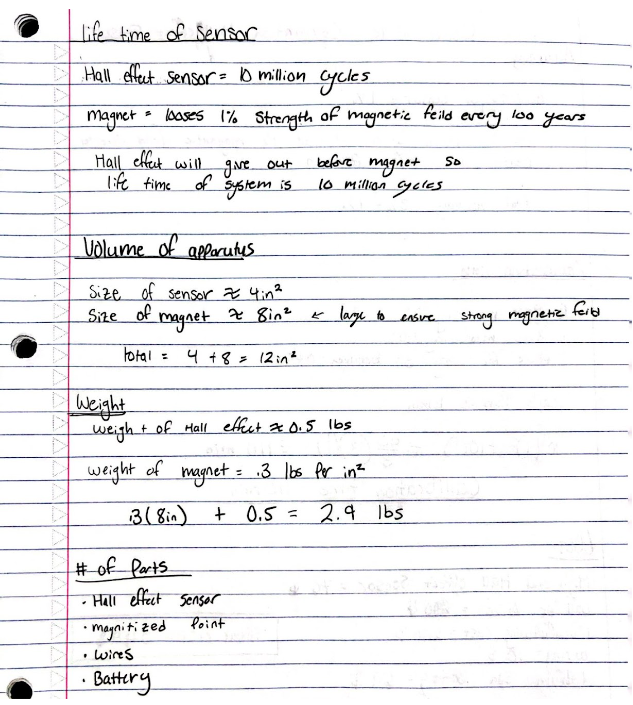 life time of Sensor
Hall effect sensor = 10 million cycles
magnet = looses 1% strength of magnetic feild every 100 years
Hall effect will give out before magnet so
life time of system is 10 million cycles
Volume of apparutus
Size of sensor ≈ 4in²
Size of magnet ≈ 8in² ← large to ensure strong magnetic feild
total = 4 + 8 = 12in²
Weight
weight of Hall effect ≈ 0.5 lbs
weight of magnet = .3 lbs per in²
.3(8in) + 0.5 = 2.9 lbs
# of Parts
· Hall effect sensor
· magnitized Point
· wires
· Battery